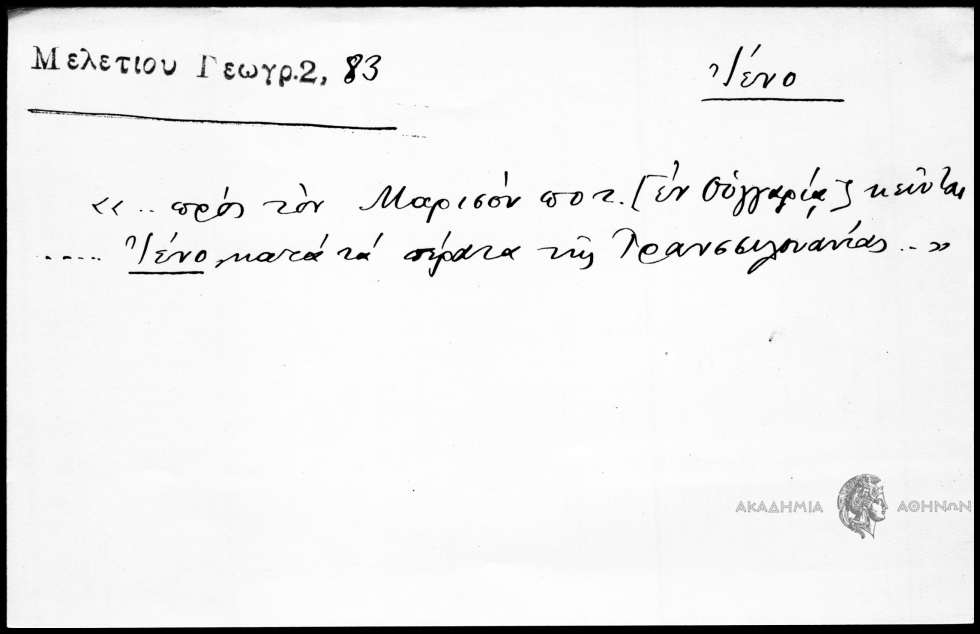 Μελετίου Γεωγρ.2, 83
Ἰένο
«.. πρός τὸν Μαρισόν ποτ. [ἐν Οὑγγαρίᾳ] κεῖνται
.... Ἰένο, κατά τά πέρατα τῆς Τρανσσιλουανίας ..»
ΑΚΑΔΗΜΙΑ ΑΘΗΝΩΝ